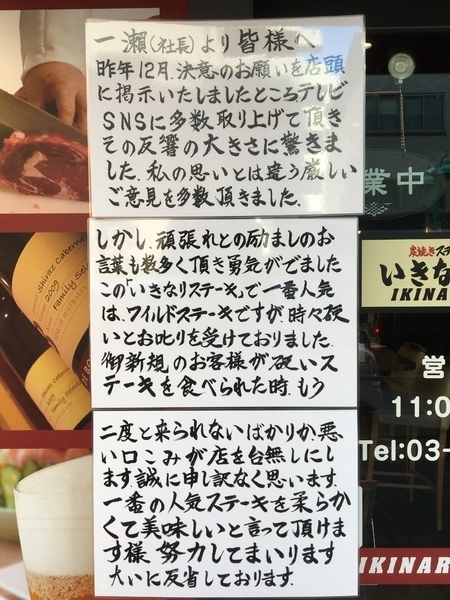 一瀬(社長)より皆様へ
昨年12月.決意のお願いを店頭
に掲示いたしましたところ.テレビ
SNSに多数取り上げて頂き
その反響の大きさに驚きま
した.私の思いとは違う厳しい
ご意見を多数頂きました.
しかし.頑張れとの励ましのお
言葉も数多く頂き勇気がでました
この「いきなりステーキ」で一番人気
は、ワイルドステーキですが時々硬
いとお叱りを受けておりました.
御新規のお客様が硬いス
テーキを食べられた時.もう
二度と来られないばかりか.悪
い口こみが店を台無しにし
ます.誠に申し訳なく思います.
一番の人気ステーキを柔らか
くて美味しいと言って頂けま
す様.努力してまいります
大いに反省しております.
Shiraz Cabernet
2009
Family Sele
2009
業中
炭焼きステ
いきな
IKINAR
営
11:0
Tel:03-
IKINAR